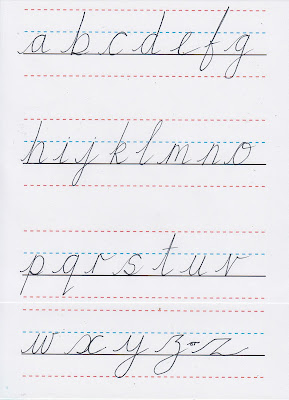 a b c d e f g
h i j k l m n o
p q r s t u v
w x y z or z